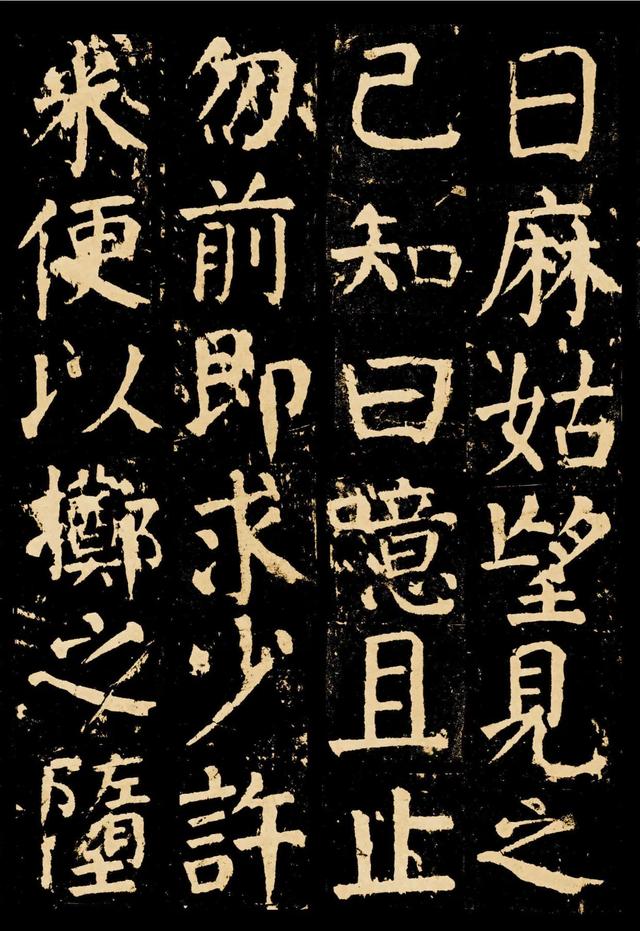 曰麻姑望見之
已知曰噫且止
勿前即求少許
米便以擲之墮